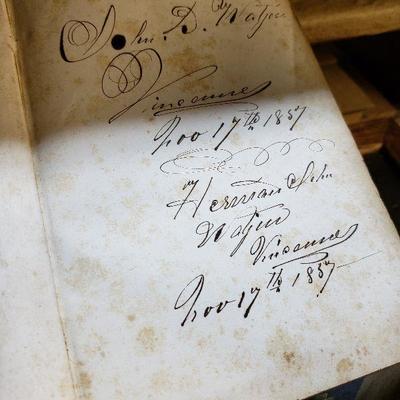 John D. Watjen
Vincennes
Nov 17th 1857
Herman John
Watjen
Vincennes
Nov 17th 1857